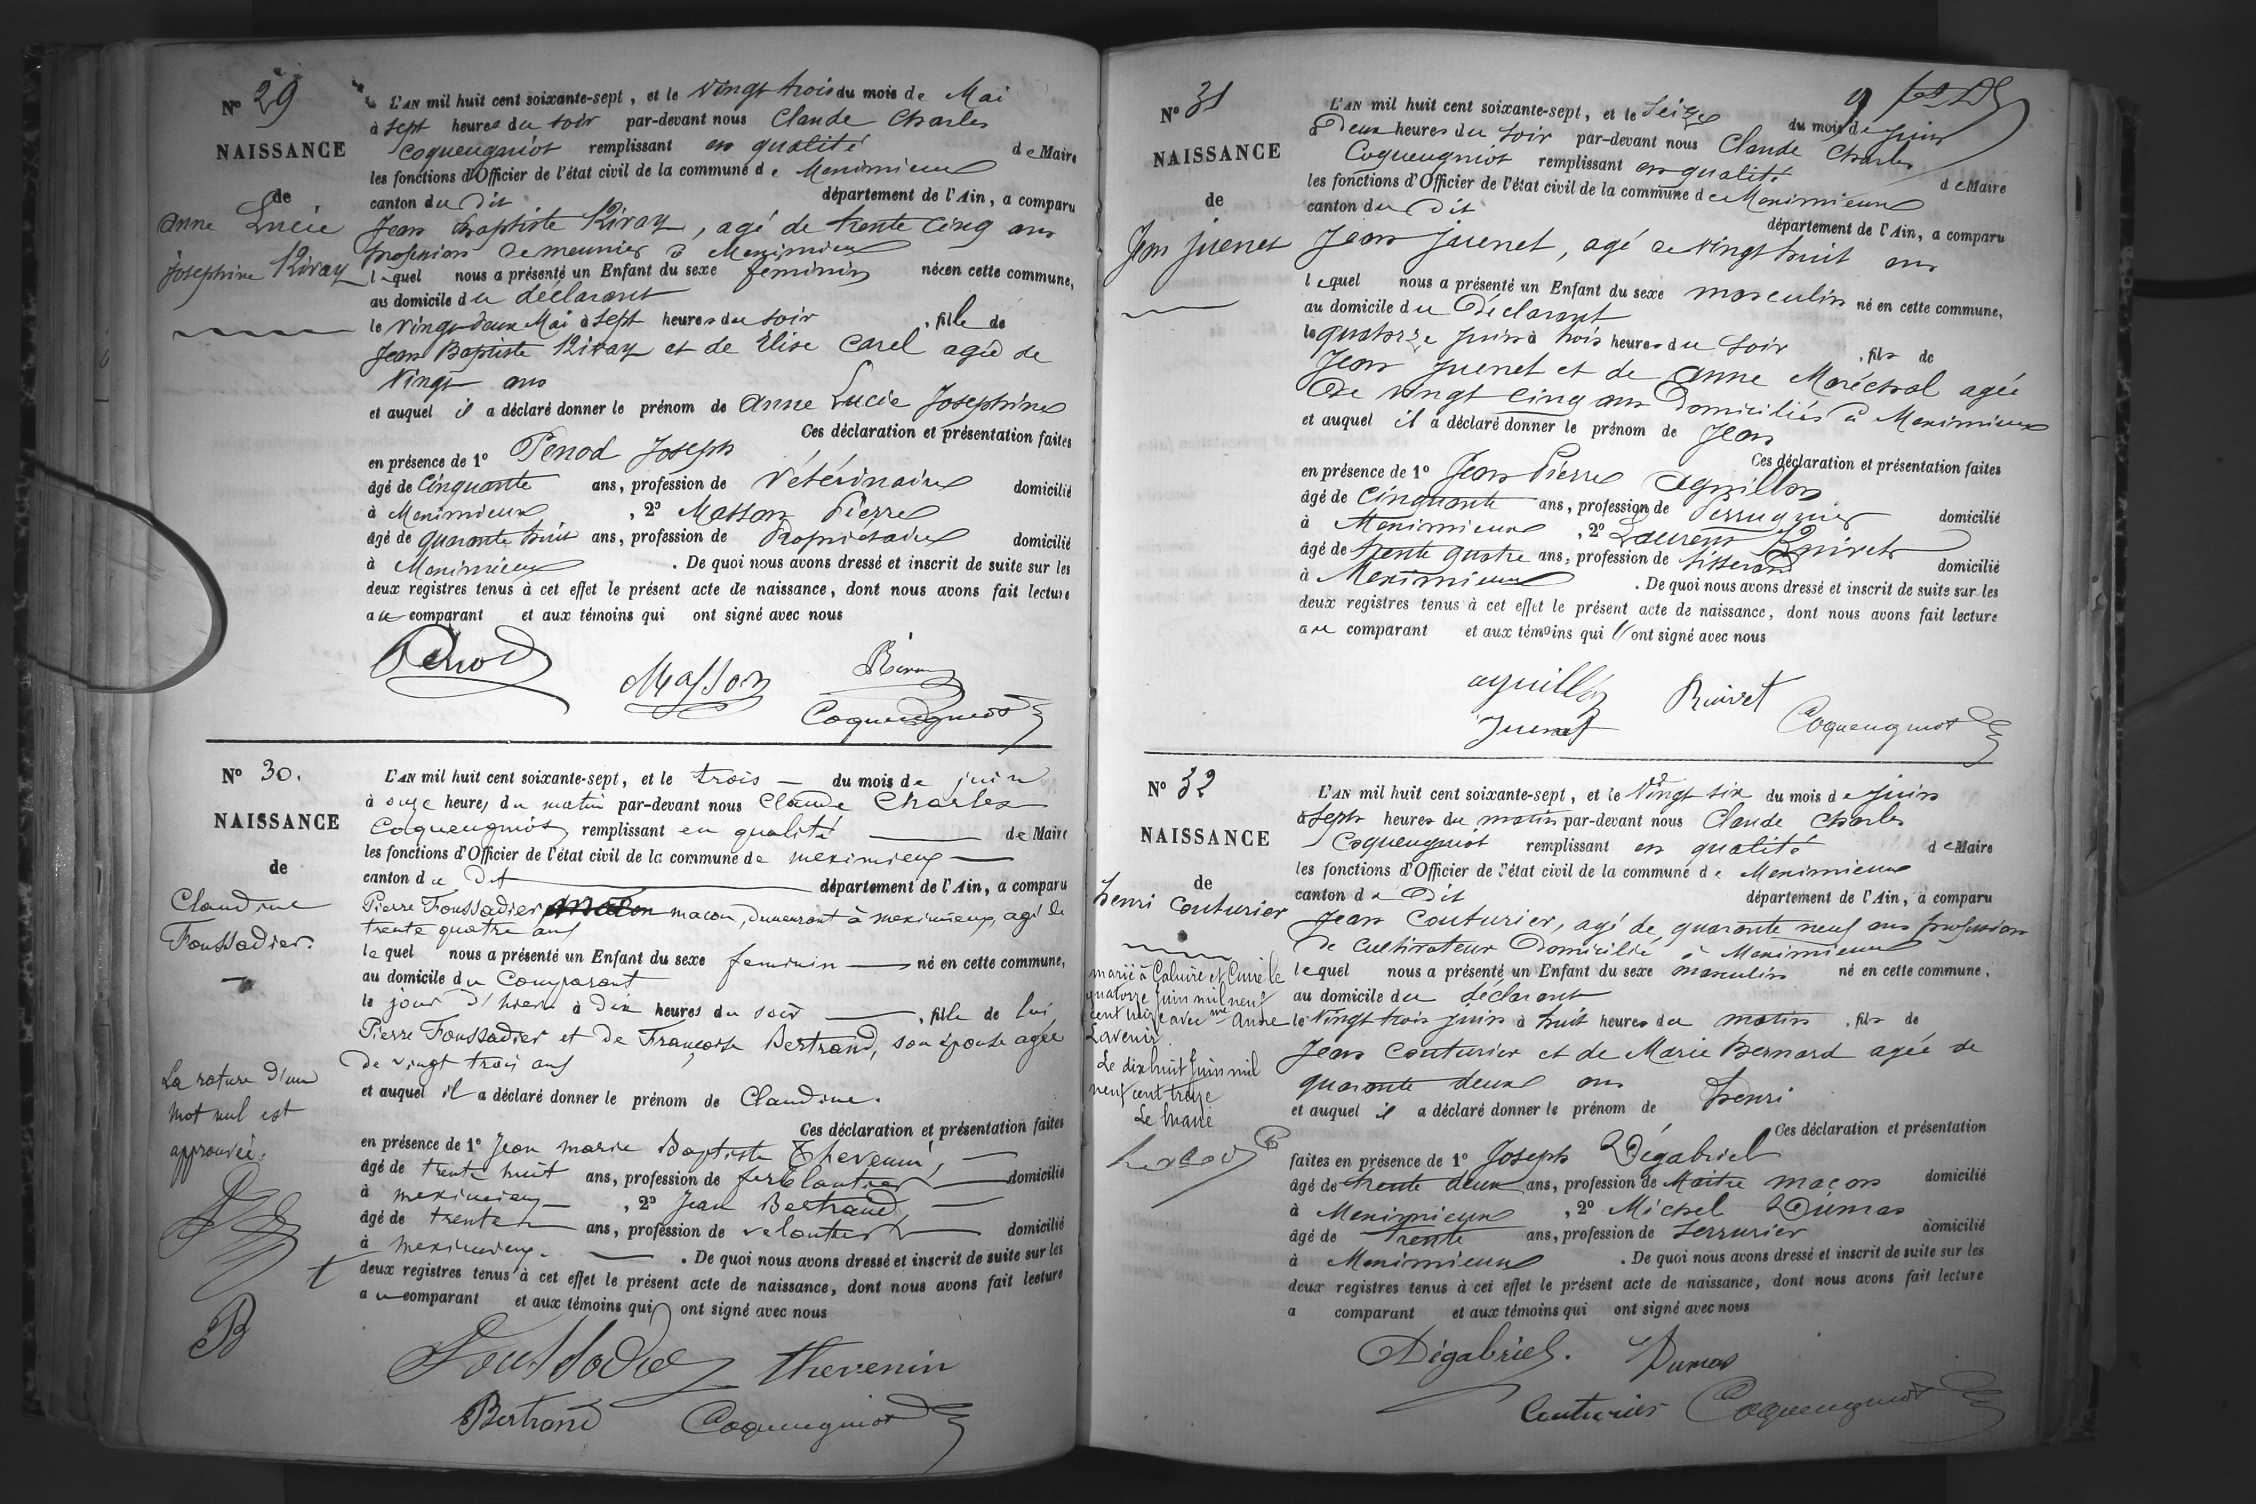 N° 29
NAISSANCE
de
Anne Lucie
Josephine Rivay
L'AN mil huit cent soixante-sept, et le Vingt trois du mois de Mai
à Sept heures du soir par-devant nous Claude Charles
Coqueugniot remplissant en qualité de Maire
les fonctions d'Officier de l'état civil de la commune de Meximieux
canton du Dit département de l'Ain, a comparu
Jean Baptiste Rivay, agé de trente cinq ans
profession de meunier à Meximieux
lequel nous a présenté un Enfant du sexe féminin née en cette commune,
au domicile du déclarant
le Vingt deux Mai à Sept heures du soir, fille de
Jean Baptiste Rivay et de Elise Carel agée de
Vingt ans
et auquel il a déclaré donner le prénom de Anne Lucie Josephine
Ces déclaration et présentation faites
en présence de 1° Penod Joseph
âgé de Cinquante ans, profession de Vétérinaire domicilié
à Meximieux, 2° Masson Pierre
âgé de quarante huit ans, profession de Propriétaire domicilié
à Meximieux. De quoi nous avons dressé et inscrit de suite sur les
deux registres tenus à cet effet le présent acte de naissance, dont nous avons fait lecture
au comparant et aux témoins qui ont signé avec nous
Penod
Masson
Coqueugniot
N° 30.
NAISSANCE
de
Claudine
Foussadier.
La rature d'un
mot nul est
approuvée.
B
L'AN mil huit cent soixante-sept, et le trois du mois de juin
à onze heures du matin par-devant nous Claude Charles
Coqueugniot, remplissant en qualité de Maire
les fonctions d'Officier de l'état civil de la commune de meximieux
canton du Dit département de l'Ain, a comparu
Pierre Foussadier macon, demeurant à meximieux, agé de
trente quatre ans
lequel nous a présenté un Enfant du sexe feminin né en cette commune,
au domicile du Comparant
le jour d'hier à dix heures du soir, fille de lui
Pierre Foussadier et de Françoise Bertrand, son épouse agée
de vingt trois ans
et auquel il a déclaré donner le prénom de Claudine.
Ces déclaration et présentation faites
en présence de 1° Jean marie Baptiste Thevenin,
âgé de trente huit ans, profession de ferblantier domicilié
à meximieux, 2° Jean Bertrand
âgé de trente ans, profession de domicilié
à meximieux. De quoi nous avons dressé et inscrit de suite sur les
deux registres tenus à cet effet le présent acte de naissance, dont nous avons fait lecture
au comparant et aux témoins qui ont signé avec nous
Foussadier thevenin
Bertrand Coqueugniot
9
N° 31
NAISSANCE
de
Jean Juenet
L'AN mil huit cent soixante-sept, et le Seize du mois de Juin
à Deux heures du soir par-devant nous Claude Charles
Coqueugniot remplissant en qualité de Maire
les fonctions d'Officier de l'état civil de la commune de Meximieux
canton du Dit département de l'Ain, a comparu
Jean Juenet, agé de vingt huit ans
lequel nous a présenté un Enfant du sexe masculin né en cette commune,
au domicile du Déclarant
le quatorze Juin à trois heures du soir, fils de
Jean Juenet et de Anne Maréchal agée
De Vingt cinq ans Domiciliés à Meximieux
et auquel il a déclaré donner le prénom de Jean
Ces déclaration et présentation faites
en présence de 1° Jean Pierre Aguillon
âgé de Cinquante ans, profession de Perruquier domicilié
à Meximieux, 2° Laurent Ruivet
âgé de trente quatre ans, profession de tisserand domicilié
à Meximieux. De quoi nous avons dressé et inscrit de suite sur les
deux registres tenus à cet effet le présent acte de naissance, dont nous avons fait lecture
au comparant et aux témoins qui ont signé avec nous
aguillon Ruivet
Juenet Coqueugniot
N° 32
NAISSANCE
de
henri Couturier
marié à Caluire et Cuire le
quatorze Juin mil neuf
cent treize avec Anne
Lavenir
Le dix huit Juin mil
neuf cent treize
Le maire
L'AN mil huit cent soixante-sept, et le Vingt six du mois de Juin
à Sept heures du matin par-devant nous Claude Charles
Coqueugniot remplissant en qualité de Maire
les fonctions d'Officier de l'état civil de la commune de Meximieux
canton du Dit département de l'Ain, a comparu
Jean Couturier, agé de quarante neuf ans profession
de Cultivateur Domicilié à Meximieux
lequel nous a présenté un Enfant du sexe masculin né en cette commune,
au domicile du déclarant
le Vingt trois Juin à huit heures du matin, fils de
Jean Couturier et de Marie Bernard agée de
quarante deux ans
et auquel il a déclaré donner le prénom de henri
Ces déclaration et présentation
faites en présence de 1° Joseph Dégabriel
âgé de trente deux ans, profession de Maître maçon domicilié
à Meximieux, 2° Michel Dumas
âgé de trente ans, profession de Serrurier domicilié
à Meximieux. De quoi nous avons dressé et inscrit de suite sur les
deux registres tenus à cet effet le présent acte de naissance, dont nous avons fait lecture
a comparant et aux témoins qui ont signé avec nous
Dégabriel. Dumas
Couturier Coqueugniot